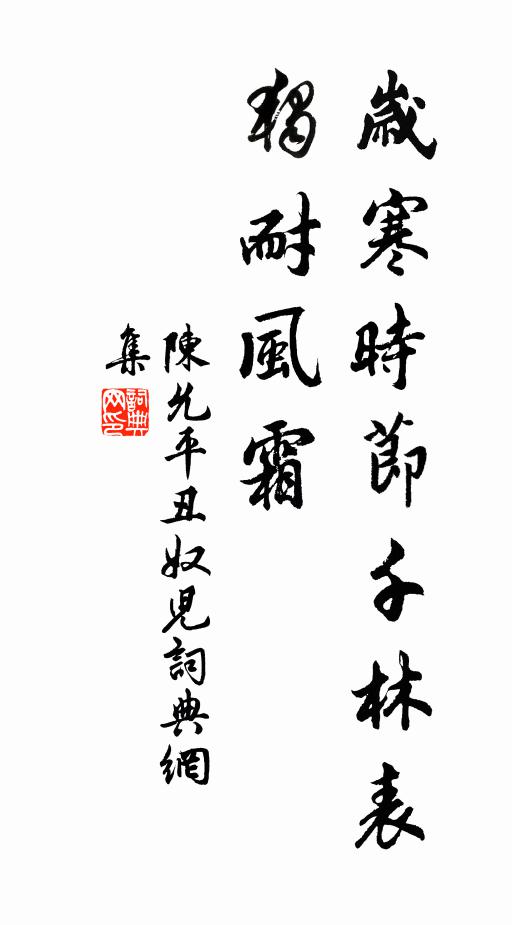 歲寒時節千林表
獨耐風霜
陳允平丑奴兒詞典網
集
詞典
网印